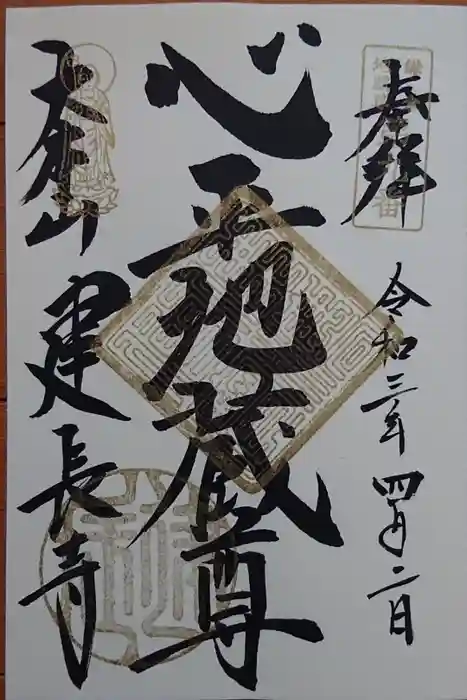 奉拝
令和三年四月二日
心平地蔵尊
建長寺